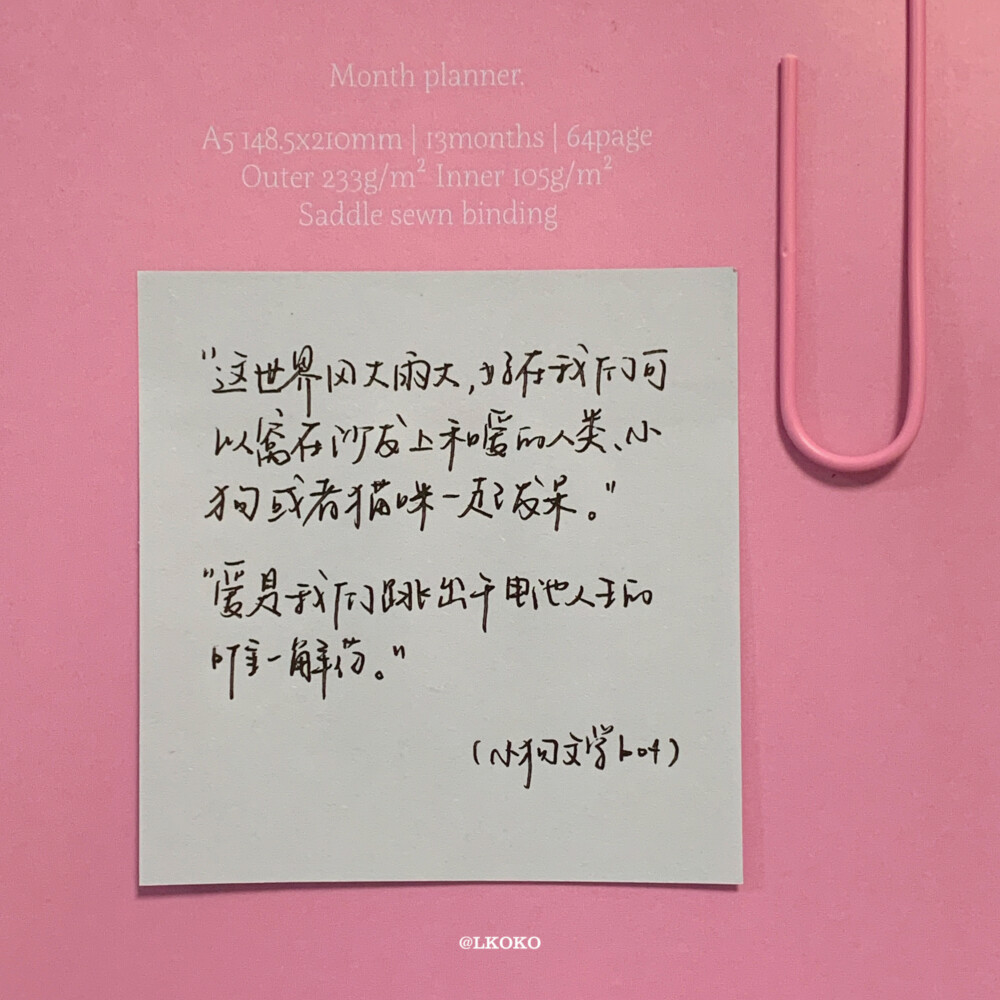 Month planner.
A5 148.5x210mm | 13months | 64page
Outer 233g/m² Inner 105g/m²
Saddle sewn binding
"这世界风大雨大,好在我们可
以窝在沙发上和暖的人类、小
狗或者猫咪一起发呆。"
"爱是我们跳出干电池人生的
唯一解药。"
(小狗文学bot)
@LKOKO